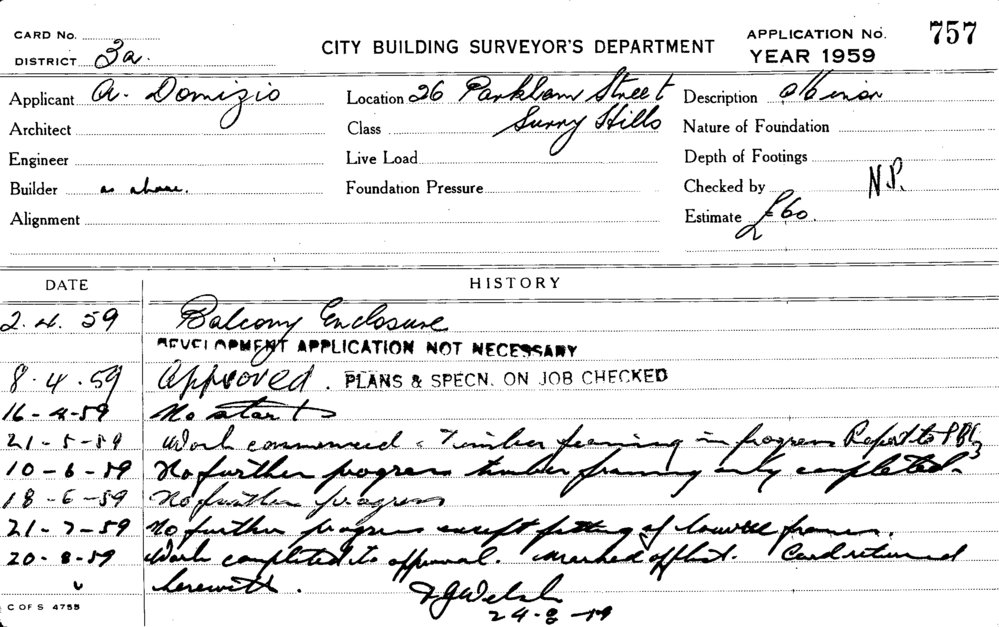 CARD No.
DISTRICT 3a.
CITY BUILDING SURVEYOR'S DEPARTMENT
APPLICATION No. 757
YEAR 1959
Applicant A. Domizio
Location 26 Parkham Street
Surry Hills
Description Minor
Architect
Class
Nature of Foundation
Engineer
Live Load
Depth of Footings
Builder as above.
Foundation Pressure
Checked by N.P.
Alignment
Estimate £60.
DATE HISTORY
2.4.59 Balcony Enclosure
DEVELOPMENT APPLICATION NOT NECESSARY
8.4.59 Approved. PLANS & SPECN. ON JOB CHECKED
16-4-59 No start
21-5-59 Work commenced - Timber framing in progress Report to
10-6-59 No further progress timber framing only completed.
18-6-59 No further progress
21-7-59 No further progress except fitting of louvre frames.
20-8-59 Work completed to approval. Marked off list. Card returned
herewith.
Welsh
24-8-59
C OF S 4755